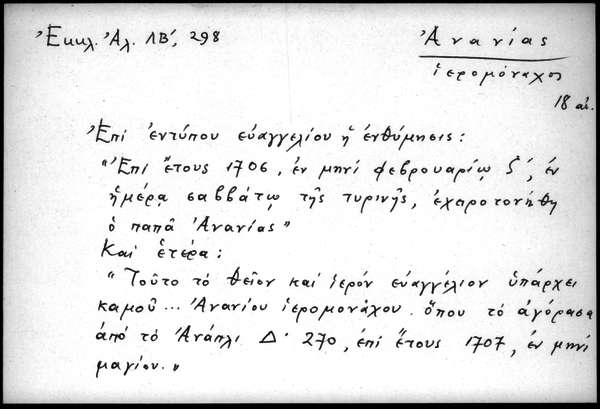 Ἐκκλ. Ἀλ. ΛΒ´, 298
Ἀνανίας
ἱερομόναχος
18 αἰ.
Ἐπί ἐντύπου εὐαγγελίου ἡ ἐνθύμησις:
"Ἐπί ἔτους 1706, ἐν μηνί φεβρουαρίῳ ζ´, ἐν
ἡμέρᾳ σαββάτῳ τῆς τυρινῆς, ἐχειροτονήθη
ὁ παπᾶ Ἀνανίας"
Καί ἑτέρα:
"Τοῦτο τό θεῖον καί ἱερόν εὐαγγέλιον ὑπάρχει
καμοῦ... Ἀνανίου ἱερομονάχου. ὅπου τό ἀγόρασα
ἀπό τό Ἀνάπλι Δ· 270, ἐπί ἔτους 1707, ἐν μηνί
μαγίον."